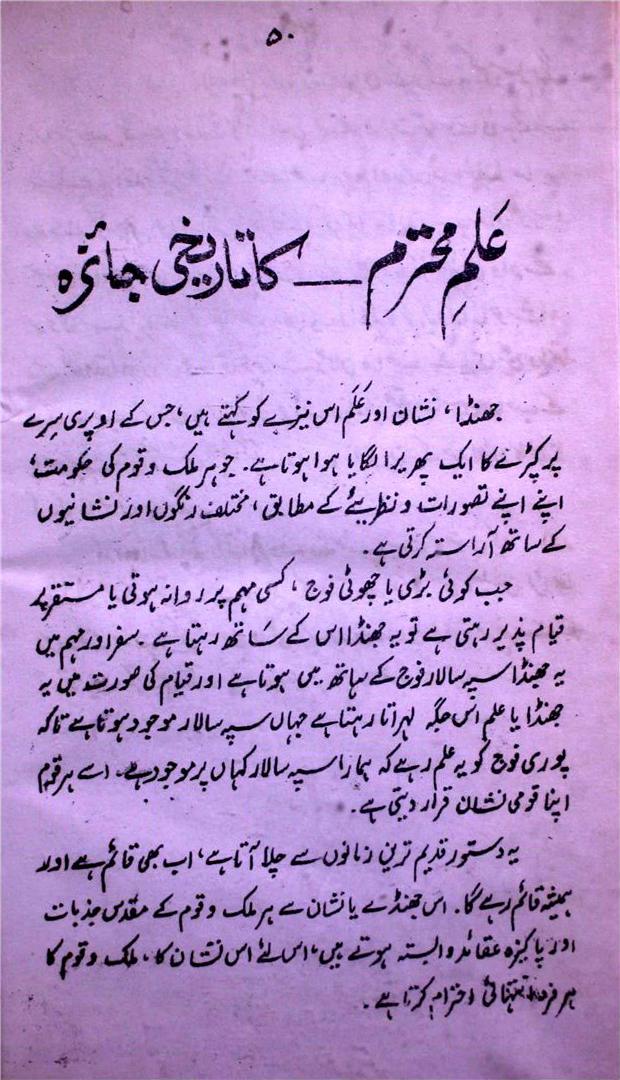 ۵۰
عَلمِ محترم — کا تاریخی جائزہ
جھنڈا، نشان اور عَلَم اس نیزے کو کہتے ہیں، جس کے اوپری سِرے
پر کپڑے کا ایک پھریرا لگایا ہوا ہوتا ہے۔ جو ہر ملک و قوم کی حکومت،
اپنے اپنے تصورات و نظریئے کے مطابق، مختلف رنگوں اور نشانیوں
کے ساتھ آراستہ کرتی ہے۔
جب کوئی بڑی یا چھوٹی فوج، کسی مہم پر روانہ ہوتی یا مستقر پر
قیام پذیر رہتی ہے تو یہ جھنڈا اس کے سَاتھ رہتا ہے۔ سفر اور مہم میں
یہ جھنڈا سپہ سالار فوج کے ہاتھ میں ہوتا ہے اور قیام کی صورت میں یہ
جھنڈا یا علم اس جگہ لہراتا رہتا ہے جہاں سپہ سالار موجود ہوتا ہے تاکہ
پوری فوج کو یہ علم رہے کہ ہمارا سپہ سالار کہاں پر موجود ہے۔ اسے ہر قوم
اپنا قومی نشان قرار دیتی ہے۔
یہ دستور قدیم ترین زمانوں سے چلا آتا ہے، اب بھی قائم ہے اور
ہمیشہ قائم رہے گا۔ اس جھنڈے یا نشان سے ہر ملک و قوم کے مقدس جذبات
اور پاکیزہ عقائد وابستہ ہوتے ہیں، اس لئے اس نشان کا، ملک و قوم کا
ہر فرد انتہائی احترام کرتا ہے۔